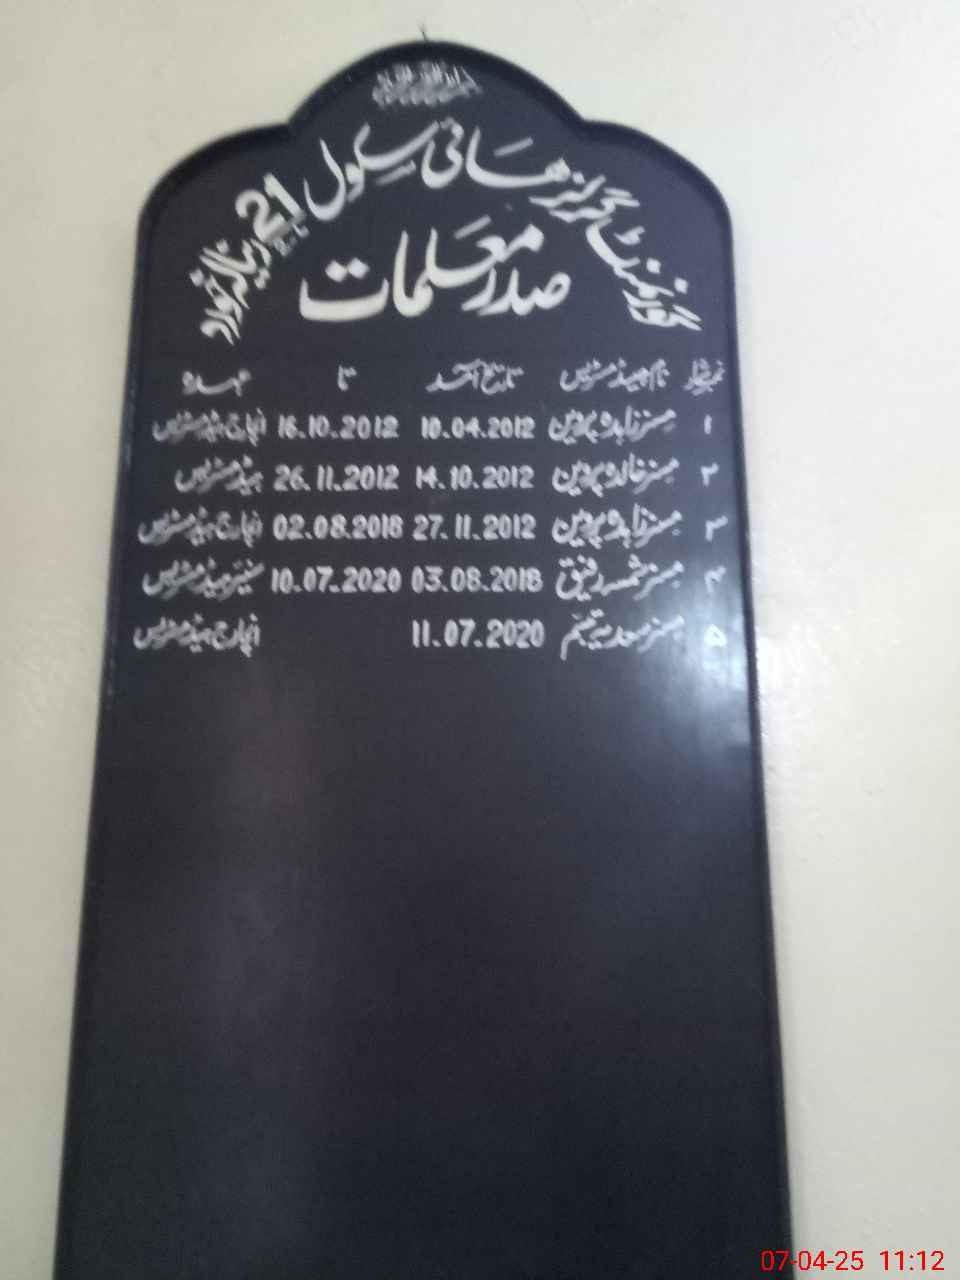 بسم اللہ الرحمن الرحیم
گورنمنٹ گرلز ھائی سکول 21 رینالہ خورد
صدر معلمات
نمبر شمار نام ہیڈ مسٹریس تاریخ آمد تا عہدہ
۱ مسز زاہدہ پروین 10.04.2012 16.10.2012 انچارج ہیڈ مسٹریس
۲ مسز خالدہ پروین 14.10.2012 26.11.2012 ہیڈ مسٹریس
۳ مسز زاہدہ پروین 27.11.2012 02.08.2018 انچارج ہیڈ مسٹریس
۴ مسز شمسہ رفیق 03.08.2018 10.07.2020 سینئر ہیڈ مسٹریس
۵ مسز سعدیہ تبسم 11.07.2020 انچارج ہیڈ مسٹریس
07-04-25 11:12